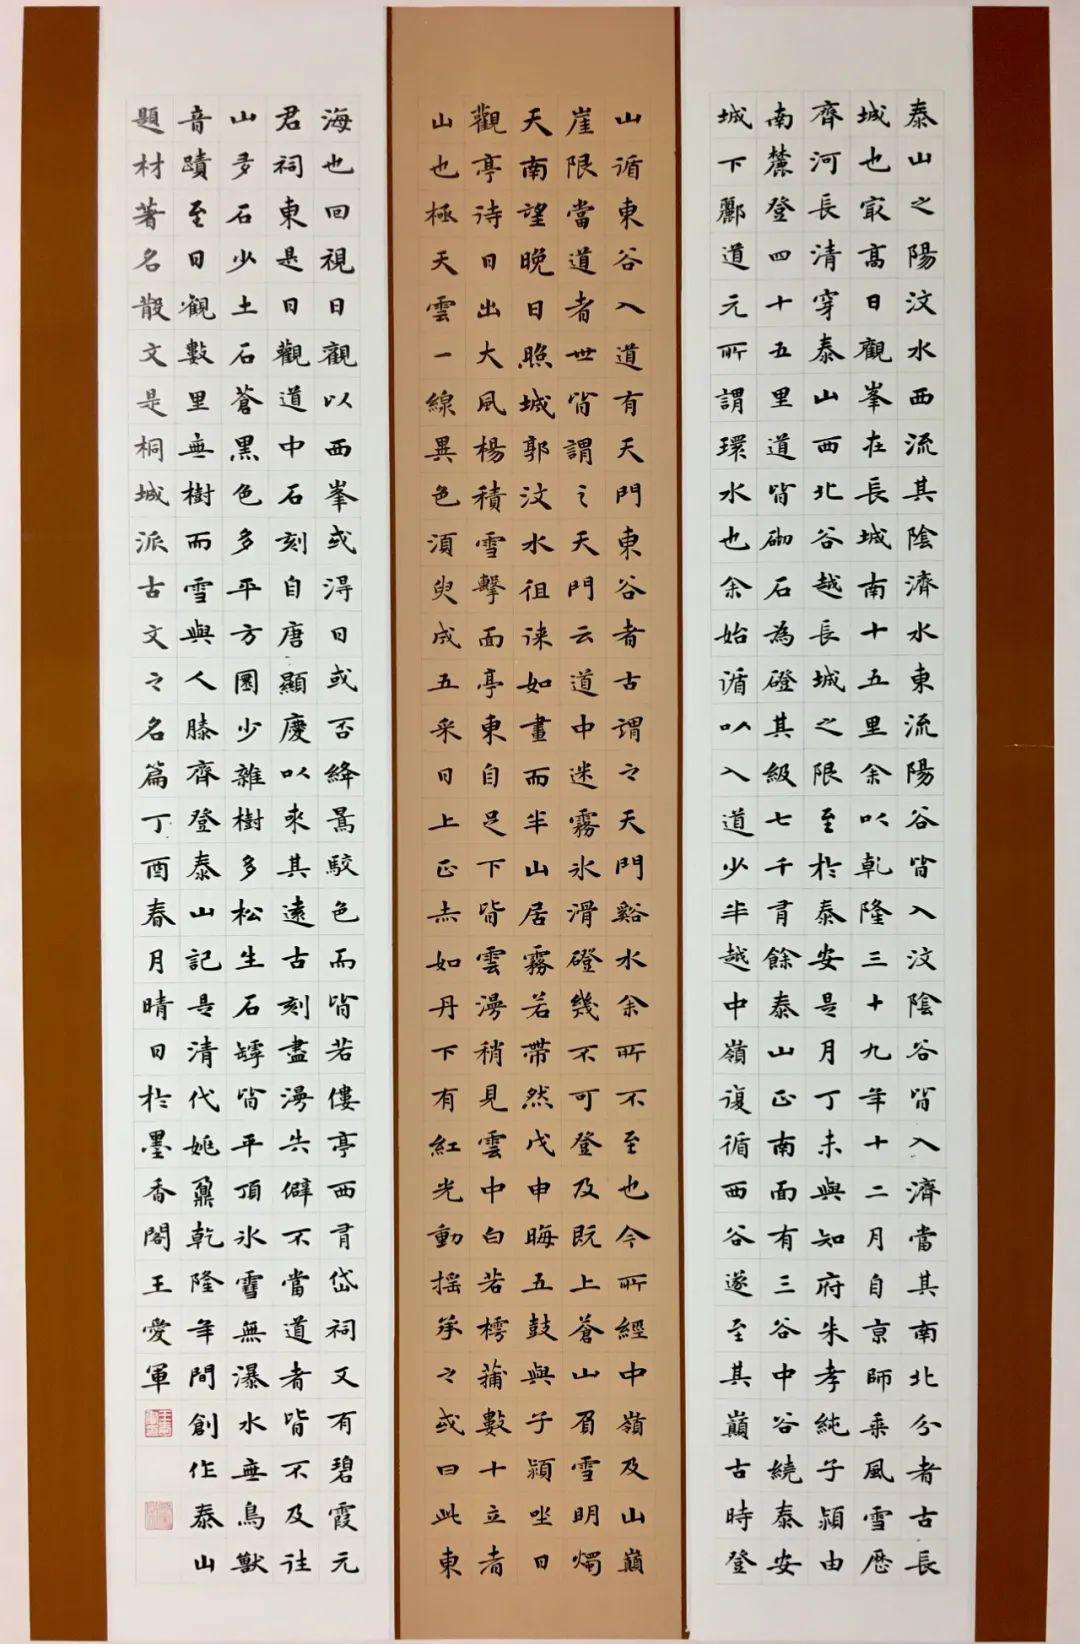 泰山之陽汶水西流其陰濟水東流陽谷皆入汶陰谷皆入濟當其南北分者古長
城也冣高日觀峯在長城南十五里余以乾隆三十九年十二月自京師乘風雪歷
齊河長清穿泰山西北谷越長城之限至於泰安是月丁未與知府朱孝純子潁由
南麓登四十五里道皆砌石為磴其級七千有餘泰山正南面有三谷中谷繞泰安
城下酈道元所謂環水也余始循以入道少半越中嶺復循西谷遂至其巔古時登
山循東谷入道有天門東谷者古謂之天門谿水余所不至也今所經中嶺及山巔
崖限當道者世皆謂之天門云道中迷霧冰滑磴幾不可登及既上蒼山負雪明燭
天南望晚日照城郭汶水徂徠如畫而半山居霧若帶然戊申晦五鼓與子潁坐日
觀亭待日出大風楊積雪擊面亭東自足下皆雲漫稍見雲中白若樗蒱數十立者
山也極天雲一線異色須臾成五采日上正赤如丹下有紅光動搖承之或曰此東
海也回視日觀以西峯或得日或否絳暠駮色而皆若僂亭西有岱祠又有碧霞元
君祠東是日觀道中石刻自唐顯慶以來其遠古刻盡漫失僻不當道者皆不及往
山多石少土石蒼黑色多平方圜少雜樹多松生石罅皆平頂冰雪無瀑水無鳥獸
音蹟至日觀數里無樹而雪與人膝齊登泰山記是清代姚鼐乾隆年間創作泰山
題材著名散文是桐城派古文之名篇丁酉春月晴日於墨香閣王愛軍